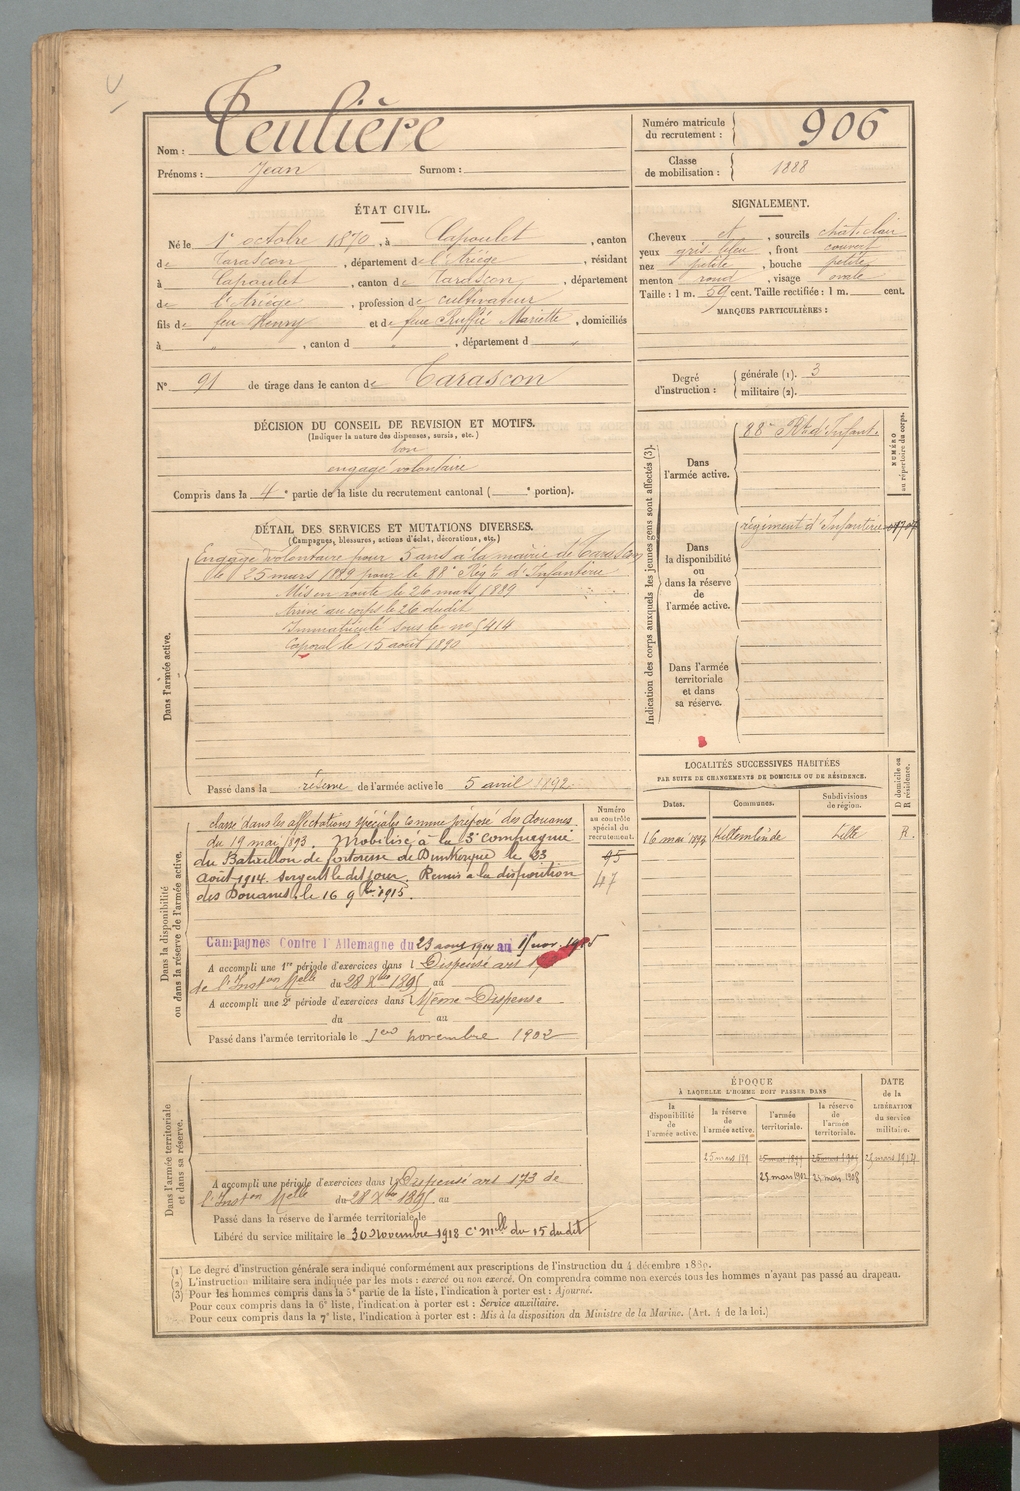 Teulière
Nom :
Prénoms : Jean Surnom :
Numéro matricule du recrutement : 906
Classe de mobilisation : 1888
ÉTAT CIVIL.
Né le 1er octobre 1870, à Capoulet, canton
de Tarascon, département de l'Ariége, résidant
à Capoulet, canton de Tarascon, département
de l'Ariége, profession de cultivateur
fils de feu Henry et de feue Ruffié Mariette, domiciliés
à " , canton d " , département d "
N° 91 de tirage dans le canton de Tarascon
SIGNALEMENT.
Cheveux et , sourcils chât. clair
yeux gris bleu , front couvert
nez petite , bouche petite
menton rond , visage ovale
Taille : 1 m. 59 cent. Taille rectifiée : 1 m. cent.
MARQUES PARTICULIÈRES :
Degré d'instruction : générale (1). 3
militaire (2).
DÉCISION DU CONSEIL DE REVISION ET MOTIFS.
(Indiquer la nature des dispenses, sursis, etc.)
bon
engagé volontaire
Compris dans la 4e partie de la liste du recrutement cantonal ( e portion).
DÉTAIL DES SERVICES ET MUTATIONS DIVERSES.
(Campagnes, blessures, actions d'éclat, décorations, etc.)
Dans l'armée active.
Engagé volontaire pour 5 ans à la mairie de Tarascon
le 25 mars 1889 pour le 88e Régt d'Infanterie
Mis en route le 26 mars 1889
Arrivé au corps le 26 dudit
Immatriculé sous le no 5414
Caporal le 15 août 1890
Passé dans la réserve de l'armée active le 5 avril 1892.
Indication des corps auxquels les jeunes gens sont affectés (3).
NUMÉRO au répertoire du corps.
Dans l'armée active.
88e Rt d'Infant.
Dans la disponibilité ou dans la réserve de l'armée active.
régiment d'Infanterie
Dans l'armée territoriale et dans sa réserve.
Dans la disponibilité ou dans la réserve de l'armée active.
Numéro au contrôle spécial du recrutement.
95
47
classé dans les affectations spéciales comme préposé des douanes
du 19 mai 1893. Mobilisé à la 3e Compagnie
du Bataillon de forteresse de Dunkerque le 23
Août 1914. Sergent le dit jour. Remis à la disposition
des Douanes le 16 9bre 1915.
Campagnes Contre l'Allemagne du 23 aout 1914 au 15 nov. 1915
A accompli une 1re période d'exercices dans l Dispensé art
de l'Inston Melle du 28 Xbre 1895 au
A accompli une 2e période d'exercices dans l Même Dispense
du au
Passé dans l'armée territoriale le 1er novembre 1902
LOCALITÉS SUCCESSIVES HABITÉES
PAR SUITE DE CHANGEMENTS DE DOMICILE OU DE RÉSIDENCE.
Dates. Communes. Subdivisions de région. D domicile ou R résidence.
16 mai 1893 Lille R.
Dans l'armée territoriale et dans sa réserve.
A accompli une période d'exercices dans l Dispensé art 173 de
l'Inston Melle du 28 Xbre 1895 au
Passé dans la réserve de l'armée territoriale le
Libéré du service militaire le 30 Novembre 1918 Cre mlle du 15 dudit
ÉPOQUE
À LAQUELLE L'HOMME DOIT PASSER DANS
la disponibilité de l'armée active. la réserve de l'armée active. l'armée territoriale. la réserve de l'armée territoriale. DATE de la LIBÉRATION du service militaire.
25 mars 1899 25 mars 1914
25 mars 1902 25 mars 1908
(1) Le degré d'instruction générale sera indiqué conformément aux prescriptions de l'instruction du 4 décembre 1889.
(2) L'instruction militaire sera indiquée par les mots : exercé ou non exercé. On comprendra comme non exercés tous les hommes n'ayant pas passé au drapeau.
(3) Pour les hommes compris dans la 5e partie de la liste, l'indication à porter est : Ajourné.
Pour ceux compris dans la 6e liste, l'indication à porter est : Service auxiliaire.
Pour ceux compris dans la 7e liste, l'indication à porter est : Mis à la disposition du Ministre de la Marine. (Art. 4 de la loi.)